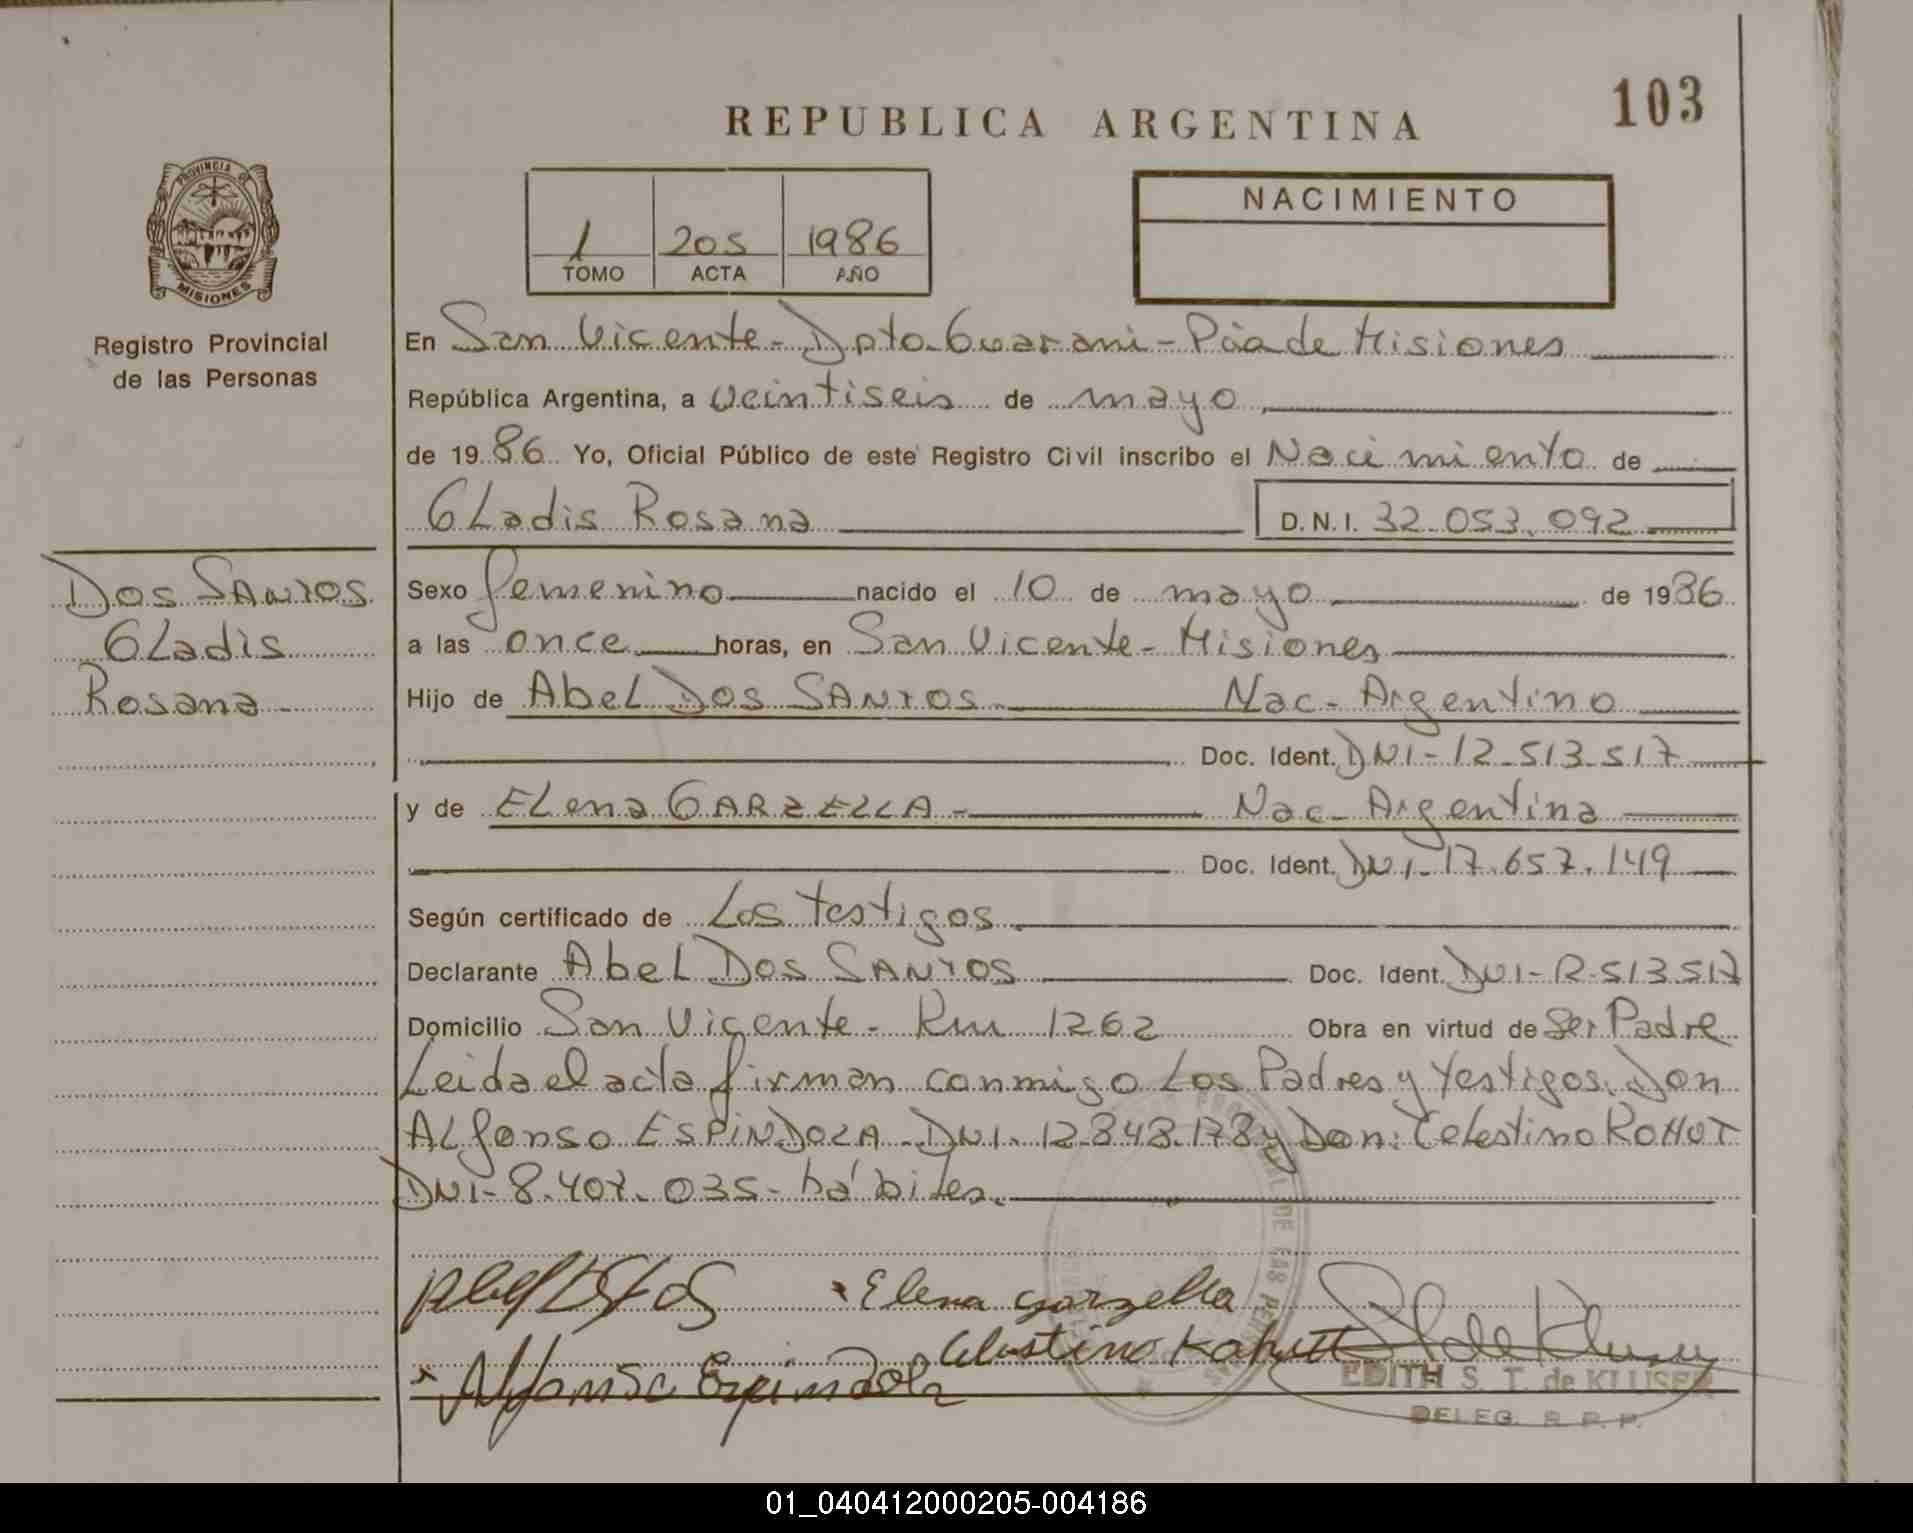 103
REPUBLICA ARGENTINA
PROVINCIA DE
MISIONES
Registro Provincial
de las Personas
1 205 1986
TOMO ACTA AÑO
NACIMIENTO
En San Vicente - Dpto. Guarani - Pcia de Misiones
República Argentina, a veintiseis de mayo
de 1986 Yo, Oficial Público de este Registro Civil inscribo el Nacimiento de
GLadis Rosana D.N.I. 32.053.092
Dos SAntos
GLadis
Rosana
Sexo femenino nacido el 10 de mayo de 1986
a las once horas, en San Vicente - Misiones
Hijo de AbeL Dos SANTOS Nac - Argentino
Doc. Ident. DNI - 12.513.517
y de ELena GARZELLA - Nac - Argentina
Doc. Ident. DNI - 17.657.149
Según certificado de Los testigos
Declarante AbeL Dos SANTOS Doc. Ident. DNI - 12.513.517
Domicilio San Vicente - Km 1262 Obra en virtud de Ser Padre
Leida el acta firman conmigo Los Padres y testigos, Don
ALfonso ESPINDOLA - DNI. 12.848.178 y Don: Celestino ROHUT
DNI - 8.407.035 - hábiles.
Elena garzella
Celestino
Alfonso Espindola
EDITH S. T. de KLUSER
DELEG. R. P. P.
01_040412000205-004186